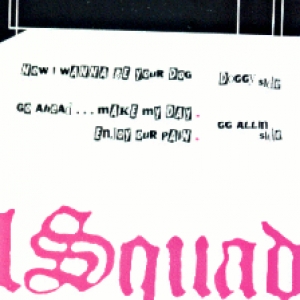 NOW I WANNA BE YOUR DOG DOGGY
GO AhEAd ... MAKE my DAY.
GG ALLIN
EnJOY OUR PAIN.
lSquad